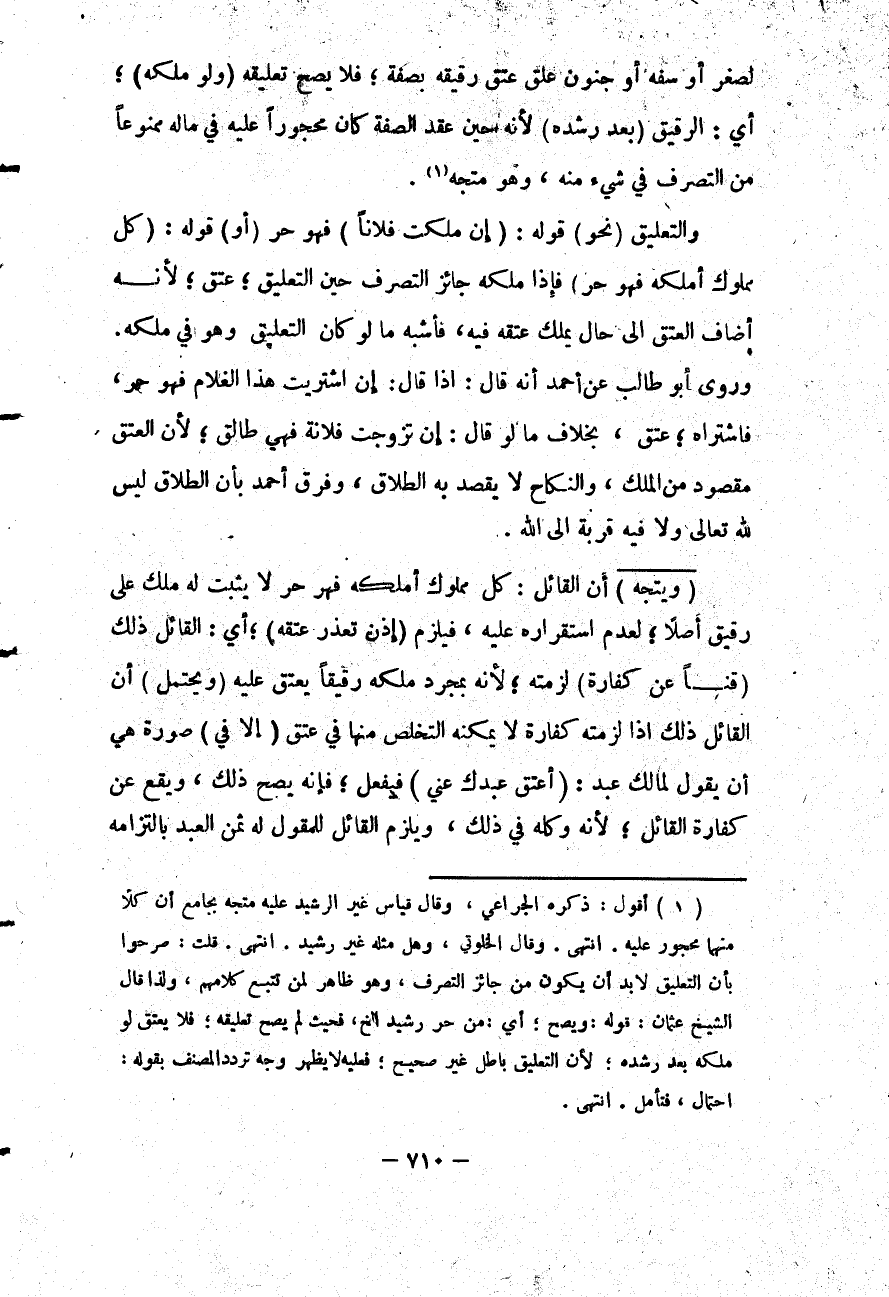 لصغر أو سفه أو جنون علق عتق رقيقه بصفة ؛ فلا يصح تعليقه (ولو ملكه) ؛
أي : الرقيق (بعد رشده) لأنه حين عقد الصفة كان محجوراً عليه في ماله ممنوعاً
من التصرف في شيء منه ، وهو متجه(١) .
والتعليق (نحو) قوله : ( إن ملكت فلاناً ) فهو حر (أو) قوله : (كل
مملوك أملكه فهو حر) فإذا ملكه جائز التصرف حين التعليق ؛ عتق ؛ لأنـــه
أضاف العتق الى حال يملك عتقه فيه، فأشبه ما لو كان التعليق وهو في ملكه.
وروى أبو طالب عن أحمد أنه قال : اذا قال: إن اشتريت هذا الغلام فهو حر،
فاشتراه ؛ عتق ، بخلاف ما لو قال : إن تزوجت فلانة فهي طالق ؛ لأن العتق
مقصود من الملك ، والنكاح لا يقصد به الطلاق ، وفرق أحمد بأن الطلاق ليس
لله تعالى ولا فيه قربة الى الله .
( ويتجه ) أن القائل : كل مملوك أملكه فهر حر لا يثبت له ملك على
رقيق أصلًا ؛ لعدم استقراره عليه ، فيلزم (إذن تعذر عتقه) ؛أي : القائل ذلك
(قنـــاً عن كفارة) لزمته ؛ لأنه بمجرد ملكه رقيقاً يعتق عليه (ويحتمل ) أن
القائل ذلك اذا لزمته كفارة لا يمكنه التخلص منها في عتق ( الا في ) صورة هي
أن يقول لمالك عبد : ( أعتق عبدك عني ) فيفعل ؛ فإنه يصح ذلك ، ويقع عن
كفارة القائل ؛ لأنه وكله في ذلك ، ويلزم القائل للمقول له ثمن العبد بالتزامه
( ١ ) أقول : ذكره الجراعي ، وقال قياس غير الرشيد عليه متجه بجامع أن كلًا
منهما محجور عليه . انتهى . وقال الخلوتي ، وهل مثله غير رشيد . انتهى . قلت : صرحوا
بأن التعليق لابد أن يكون من جائز التصرف ، وهو ظاهر لمن تتبع كلامهم ، ولذا قال
الشيخ عثمان : قوله :ويصح ؛ أي :من حر رشيد الخ، فحيث لم يصح تعليقه ؛ فلا يعتق لو
ملكه بعد رشده ؛ لأن التعليق باطل غير صحيح ؛ فعليه لايظهر وجه تردد المصنف بقوله :
احتمال ، فتأمل . انتهى .
— ٧١٠ —